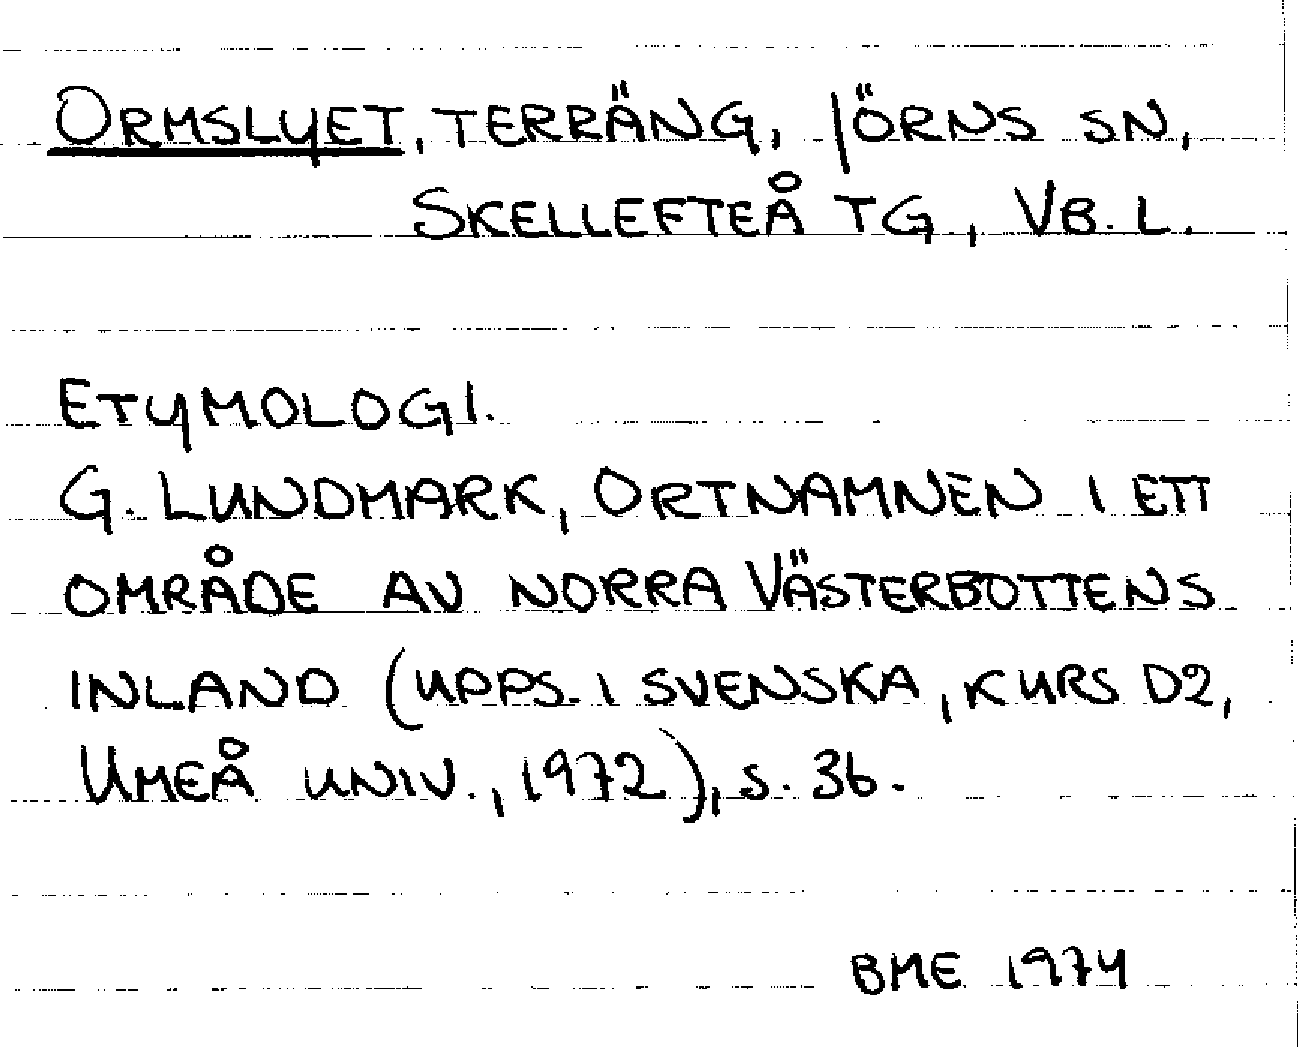 ORMSLYET, TERRÄNG, JÖRNS SN,
SKELLEFTEÅ TG, VB. L.
ETYMOLOGI.
G. LUNDMARK, ORTNAMNEN I ETT
OMRÅDE AV NORRA VÄSTERBOTTENS
INLAND (UPPS. I SVENSKA, KURS D2,
UMEÅ UNIV., 1972), S. 36.
BME 1974